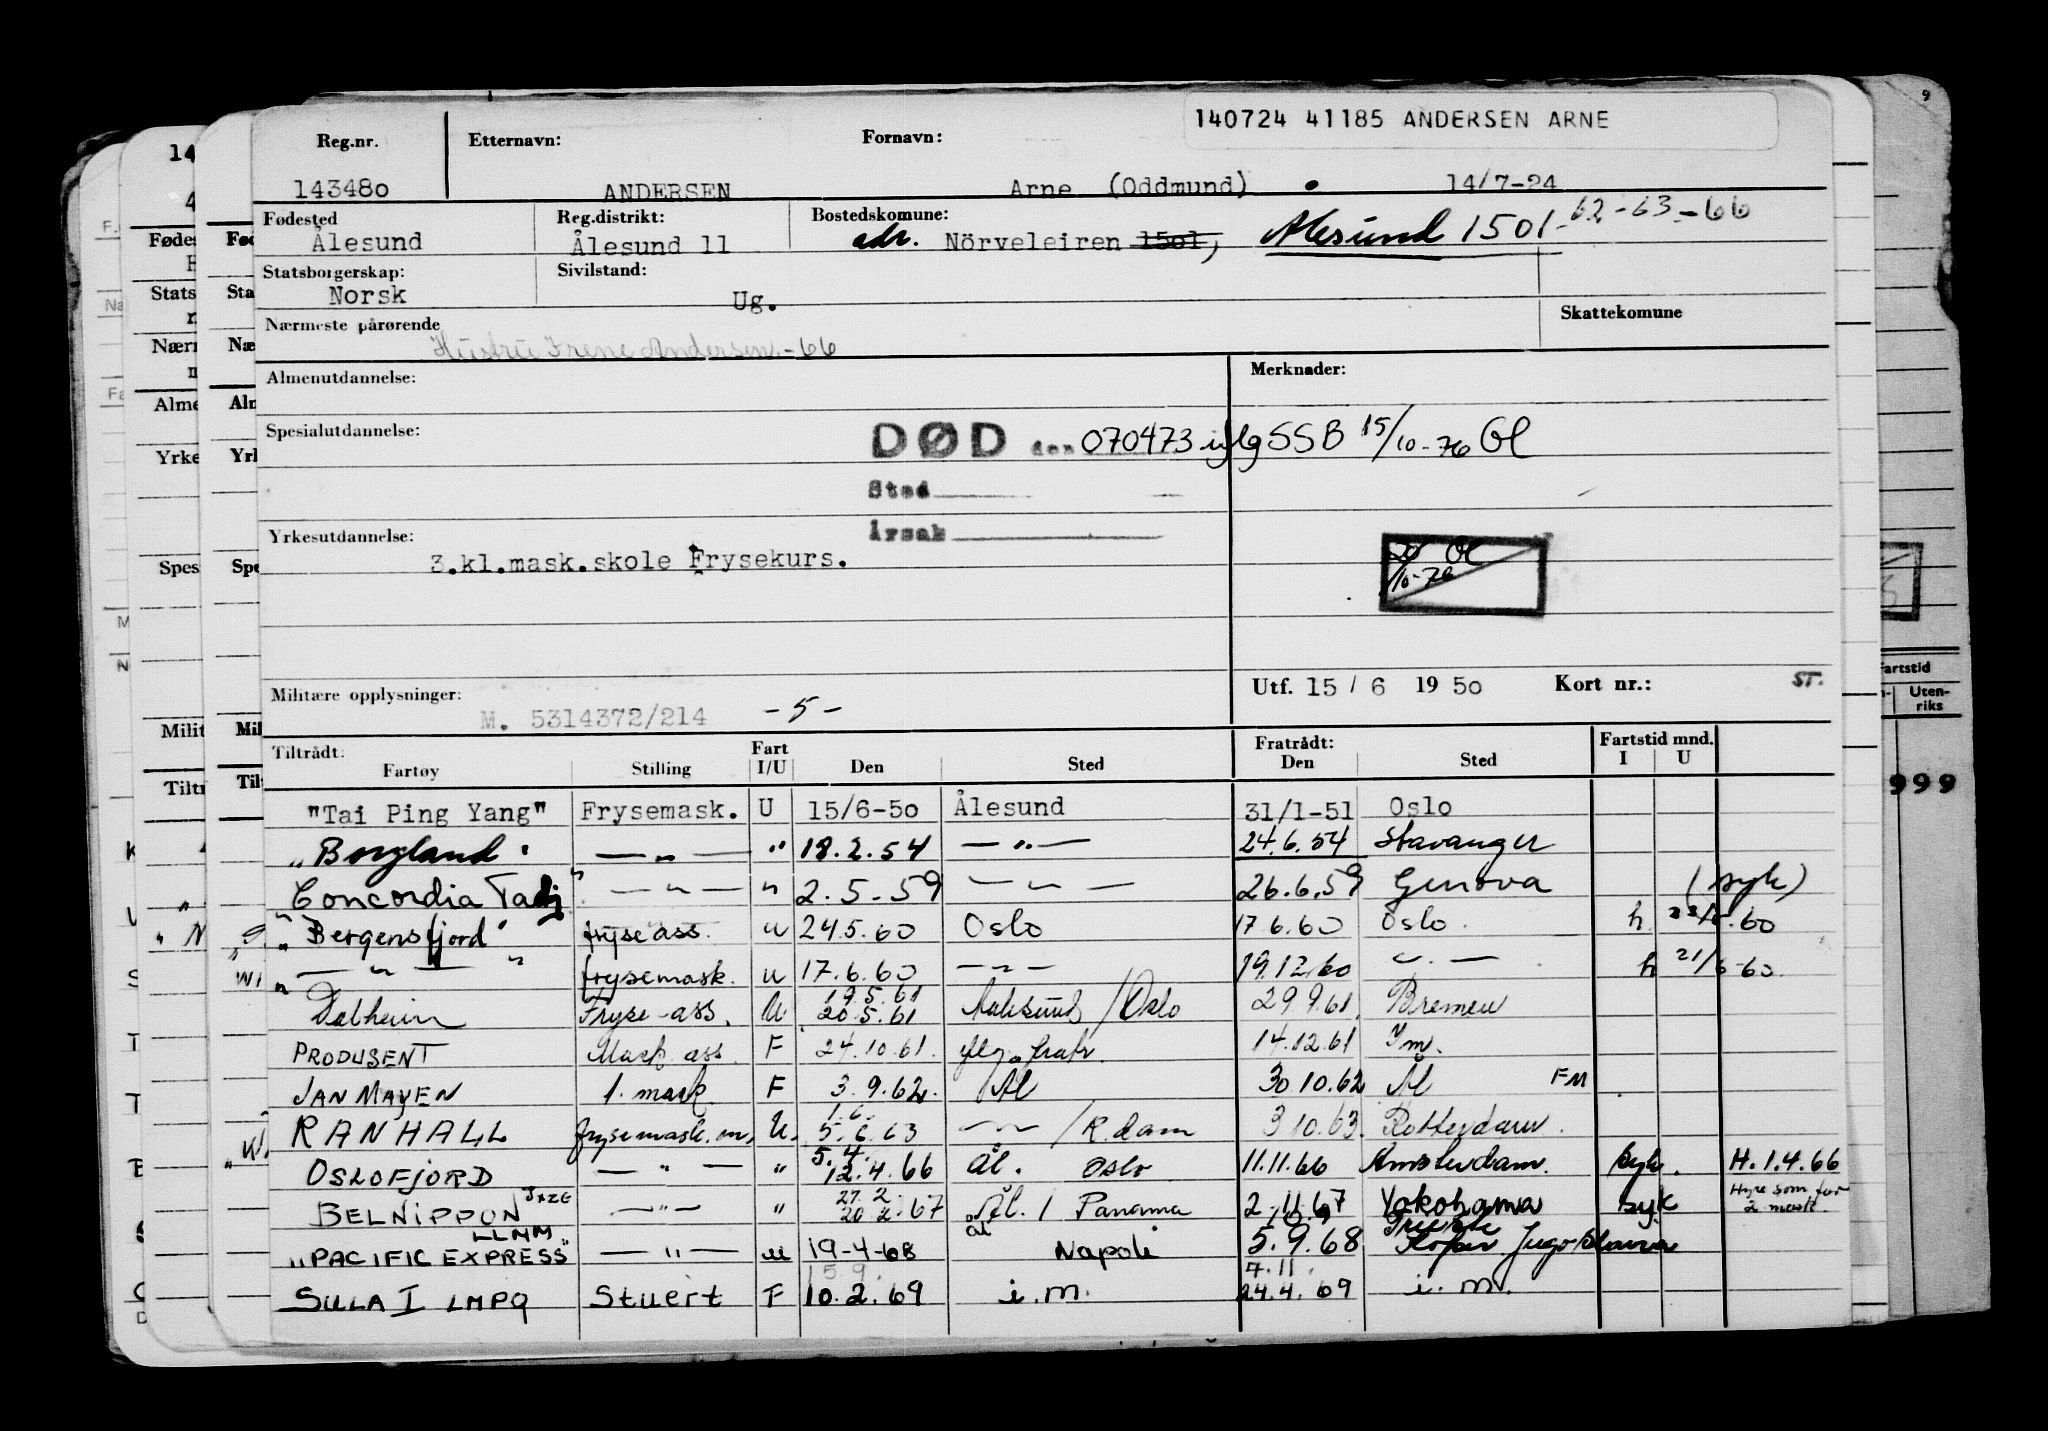 140724 41185 ANDERSEN ARNE
Reg.nr. Etternavn: Fornavn:
143480 ANDERSEN Arne (Oddmund) 14/7-24
Fødested Reg.distrikt: Bostedskomune: 62-63-66
Ålesund Ålesund 11 adr. Nörveleiren 1501, Ålesund 1501-
Statsborgerskap: Sivilstand:
Norsk Ug.
Nærmeste pårørende Skattekomune
Hustru Irene Andersen -66
Almenutdannelse: Merknader:
Spesialutdannelse: DØD den 070473 iflg SSB 15/10-76 Gl
Sted
Årsak
Yrkesutdannelse:
3.kl.mask.skole Frysekurs.
10-76
Militære opplysninger: Utf. 15 / 6 19 50 Kort nr.: ST.
M. 5314372/214 -5-
Tiltrådt: Fart Fratrådt: Fartstid mnd.
Fartøy Stilling I/U Den Sted Den Sted I U
"Tai Ping Yang" Frysemask. U 15/6-50 Ålesund 31/1-51 Oslo
"Borgland" — " — " 18.2.54 — " — 24.6.54 Stavanger
"Concordia Tadj" — " — " 2.5.59 — " — 26.6.59 Genova (syk)
"Bergensfjord" fryse ass. u 24.5.60 Oslo 17.6.60 Oslo h 60
" — " — " frysemask. u 17.6.60 — " — 19.12.60 " — h 21/6-60
19.5.61
Dalheim Fryse-ass. U 20.5.61 Aalesund / Oslo 29.9.61 Bremen
PRODUSENT Mask. ass. F 24.10.61. iflg. fratr. 14.12.61 I m.
JAN MAYEN 1. mask. F 3.9.62. Ål 30.10.62 Ål FM
1.6.
RANHALL frysemask.m. U. 5.6.63 — " — / R.dam 3.10.63. Rotterdam.
5.4.
OSLOFJORD — " — " 12.4.66 Ål. Oslo 11.11.66 Amsterdam. syk. H. 1.4.66
JXZG 27.2
BELNIPPON — " — " 20 2.67 Ål. / Panama 2-11.67 Yokohama syk Hyre som for 2 mask.
LLMM Ål
"PACIFIC EXPRESS" — " — u 19-4-68 Napoli 5.9.68 Koper Jugoslavia
15.9. 7.11.
SULA I LMPQ Stuert F 10.2.69 i.m. 24.4.69 i.m.
9
Fartstid
Uten-
riks
999